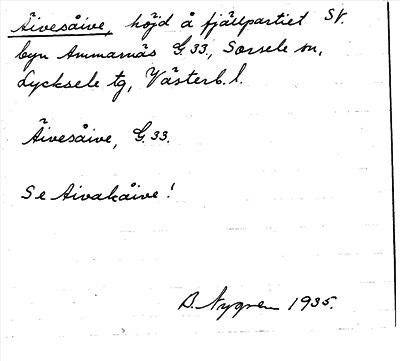 Äivesåive, höjd å fjällpartiet SV.
byn Ammarnäs G.33., Sorsele sn,
Lycksele tg, Västerb. l.
Äivesåive, G.33.
Se Aivakåive!
B. Nygren 1935.